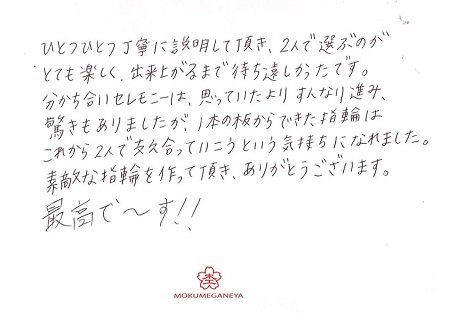 ひとつひとつ丁寧に説明して頂き、2人で選ぶのが
とても楽しく、出来上がるまで待ち遠しかったです。
分かち合いセレモニーは、思っていたよりすんなり進み、
驚きもありましたが、1本の板からできた指輪は
これから2人で支え合っていこうという気持ちになれました。
素敵な指輪を作って頂き、ありがとうございます。
最高で〜す!!
MOKUMEGANEYA